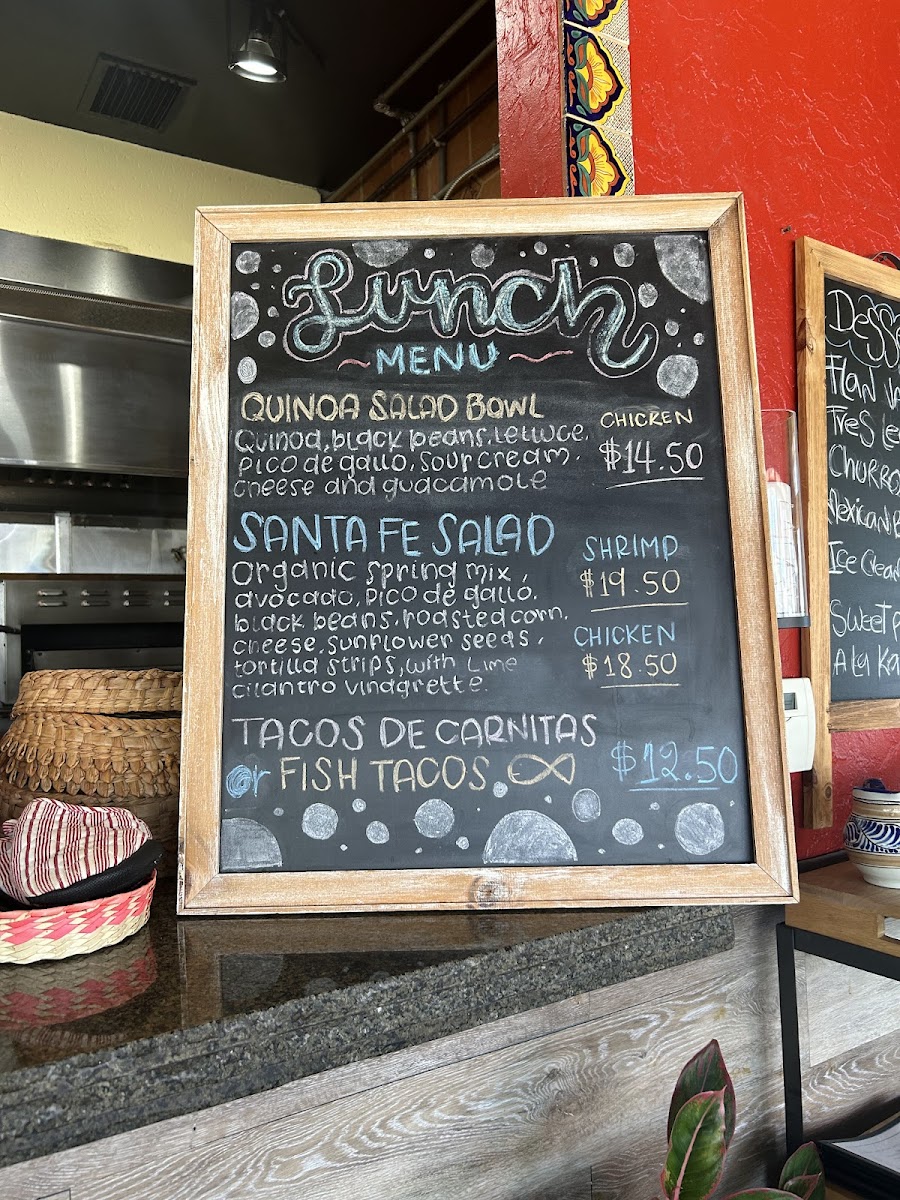 Lunch
MENU
QUINOA SALAD BOWL
Quinoa, black beans, Lettuce,
Pico de gallo, Sour cream,
cheese and guacamole
CHICKEN
$14.50
SANTA FE SALAD
organic spring mix,
avocado, Pico de gallo,
black beans, roasted corn,
cheese, sunflower seeds,
tortilla strips, with Lime
cilantro vinagrette.
SHRIMP
$19.50
CHICKEN
$18.50
TACOS DE CARNITAS
or FISH TACOS
$12.50
Flan
Tres
Ice Cream
Sweet